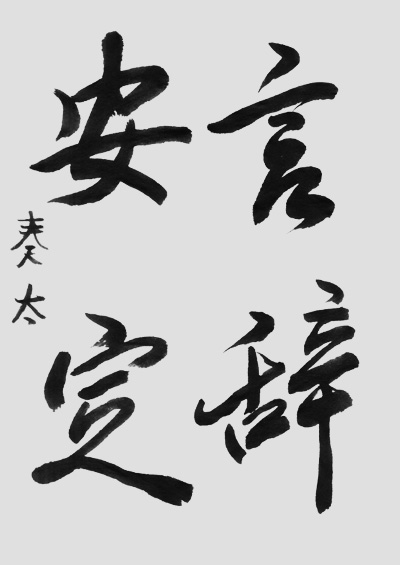 言辞
安定
奏太